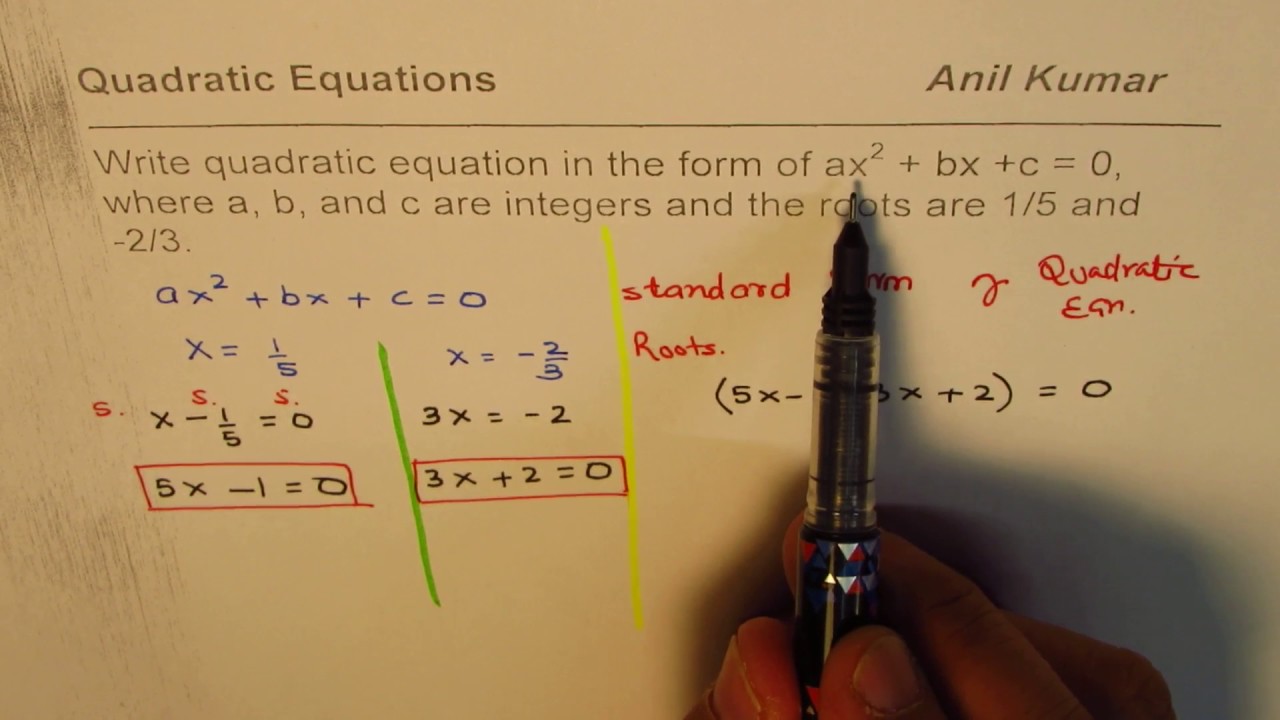 Quadratic Equations Anil Kumar
Write quadratic equation in the form of ax² + bx +c = 0,
where a, b, and c are integers and the roots are 1/5 and
-2/3.
ax² + bx + c = 0
x = 1/5
x = -2/3
s. s. s.
x - 1/5 = 0
3x = -2
5x -1 = 0
3x + 2 = 0
standard Quadratic
Eqn.
Roots.
(5x- x + 2) = 0